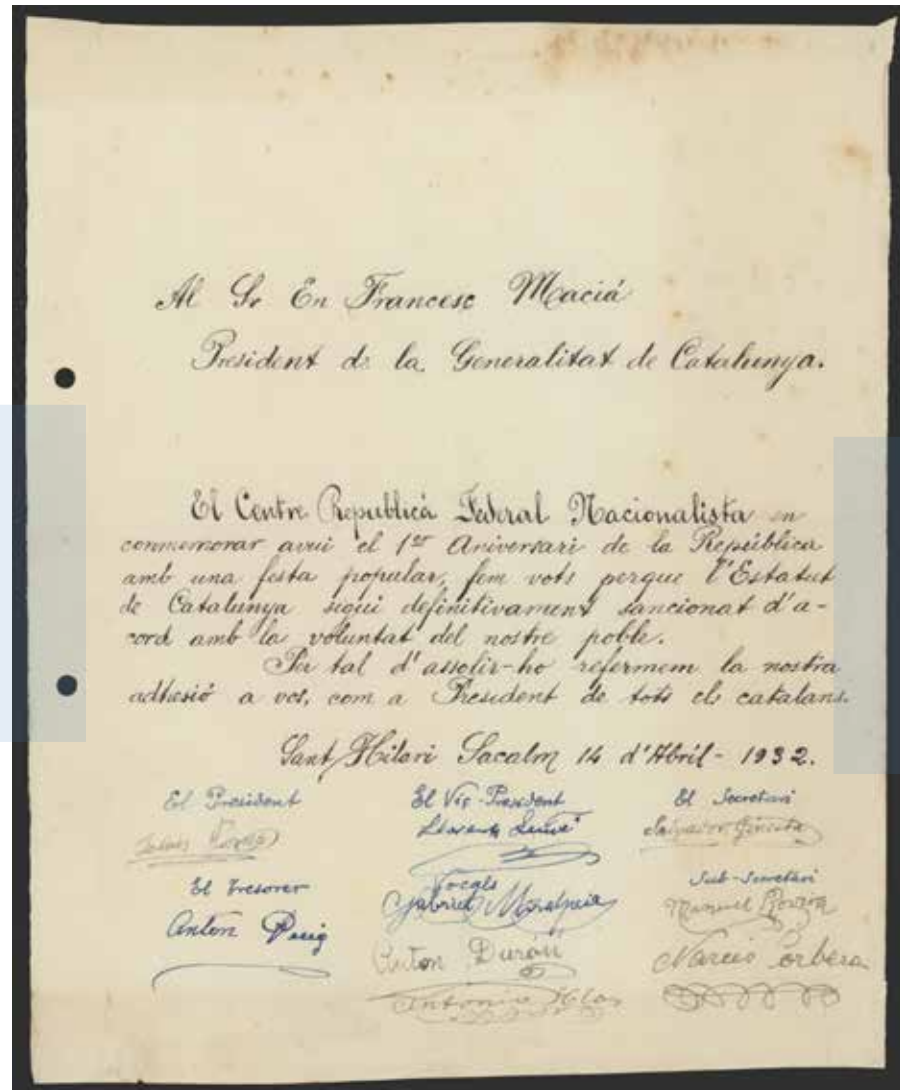 Al Sr En Francesc Maciá
President de la Generalitat de Catalunya.
El Centre Republicá Federal Nacionalista en
conmemorar avui el 1er Aniversari de la República
amb una festa popular, fem vots perque l'Estatut
de Catalunya sigui definitivament sancionat d'a-
cord amb la voluntat del nostre poble.
Per tal d'assolir-ho refermem la nostra
adhesió a vos, com a President de tots els catalans.
Sant Hilari Sacalm 14 d'Abril - 1932.
El President El Vis-President El Secretari
Salvador
El Tresorer Vocals Sub-Secretari
Anton Puig Gabriel Manuel
Anton Durán Narcis
Antonio